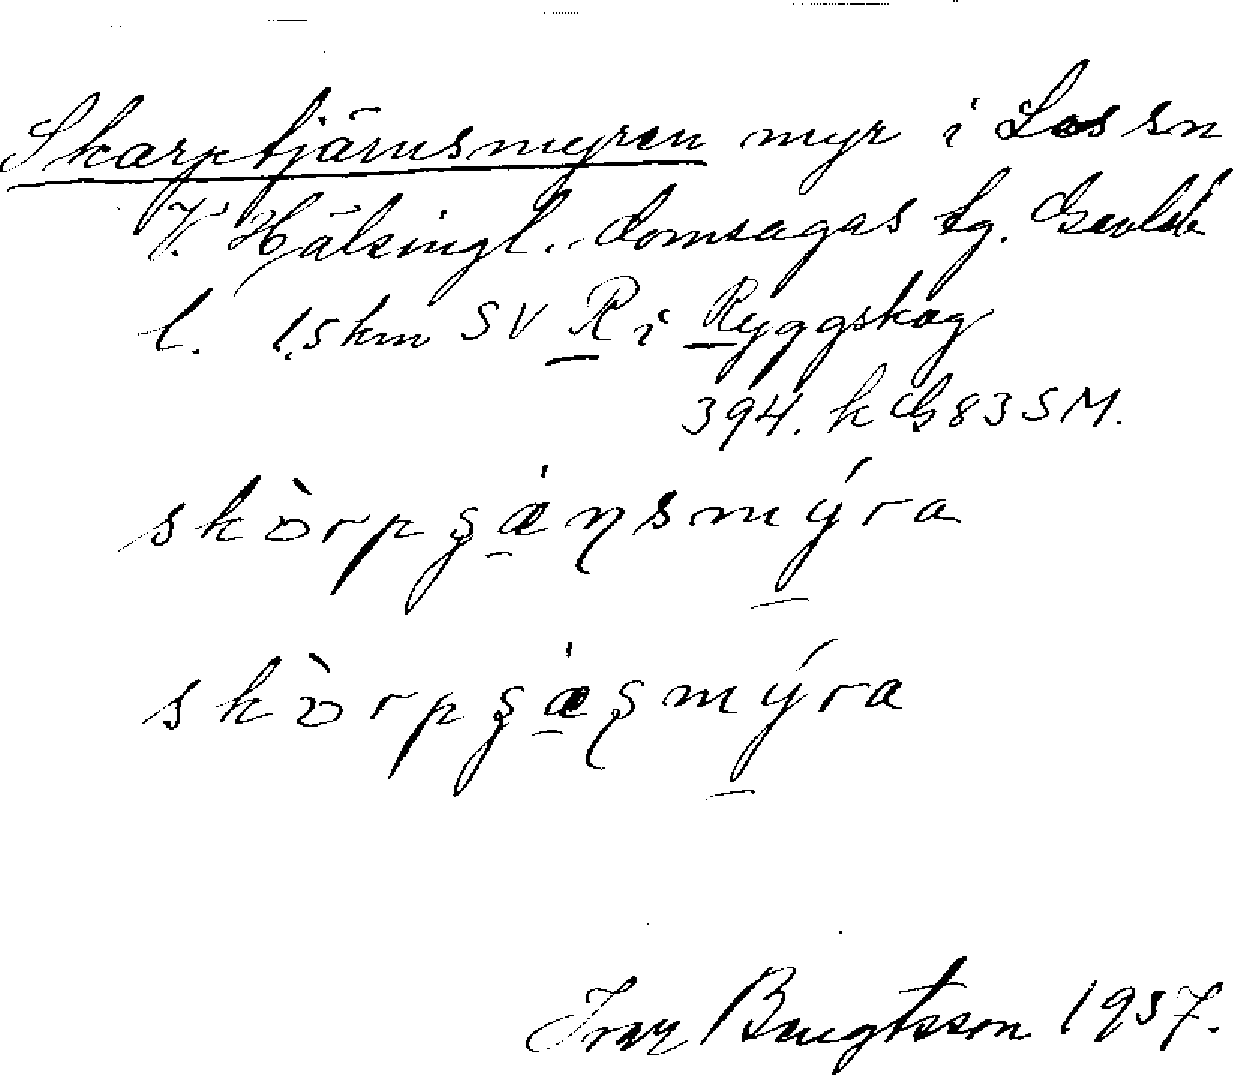 Skarptjärnsmyren myr i Los sn
V. Hälsingl. domsagas tg. Gävleb
l. 1,5 km SV R i Ryggskog
394. k G 83 SM.
skòrpʂæ̀ɳsmýra
skòrpʂæ̀ʂmýra
Ivar Bengtsson 1957.